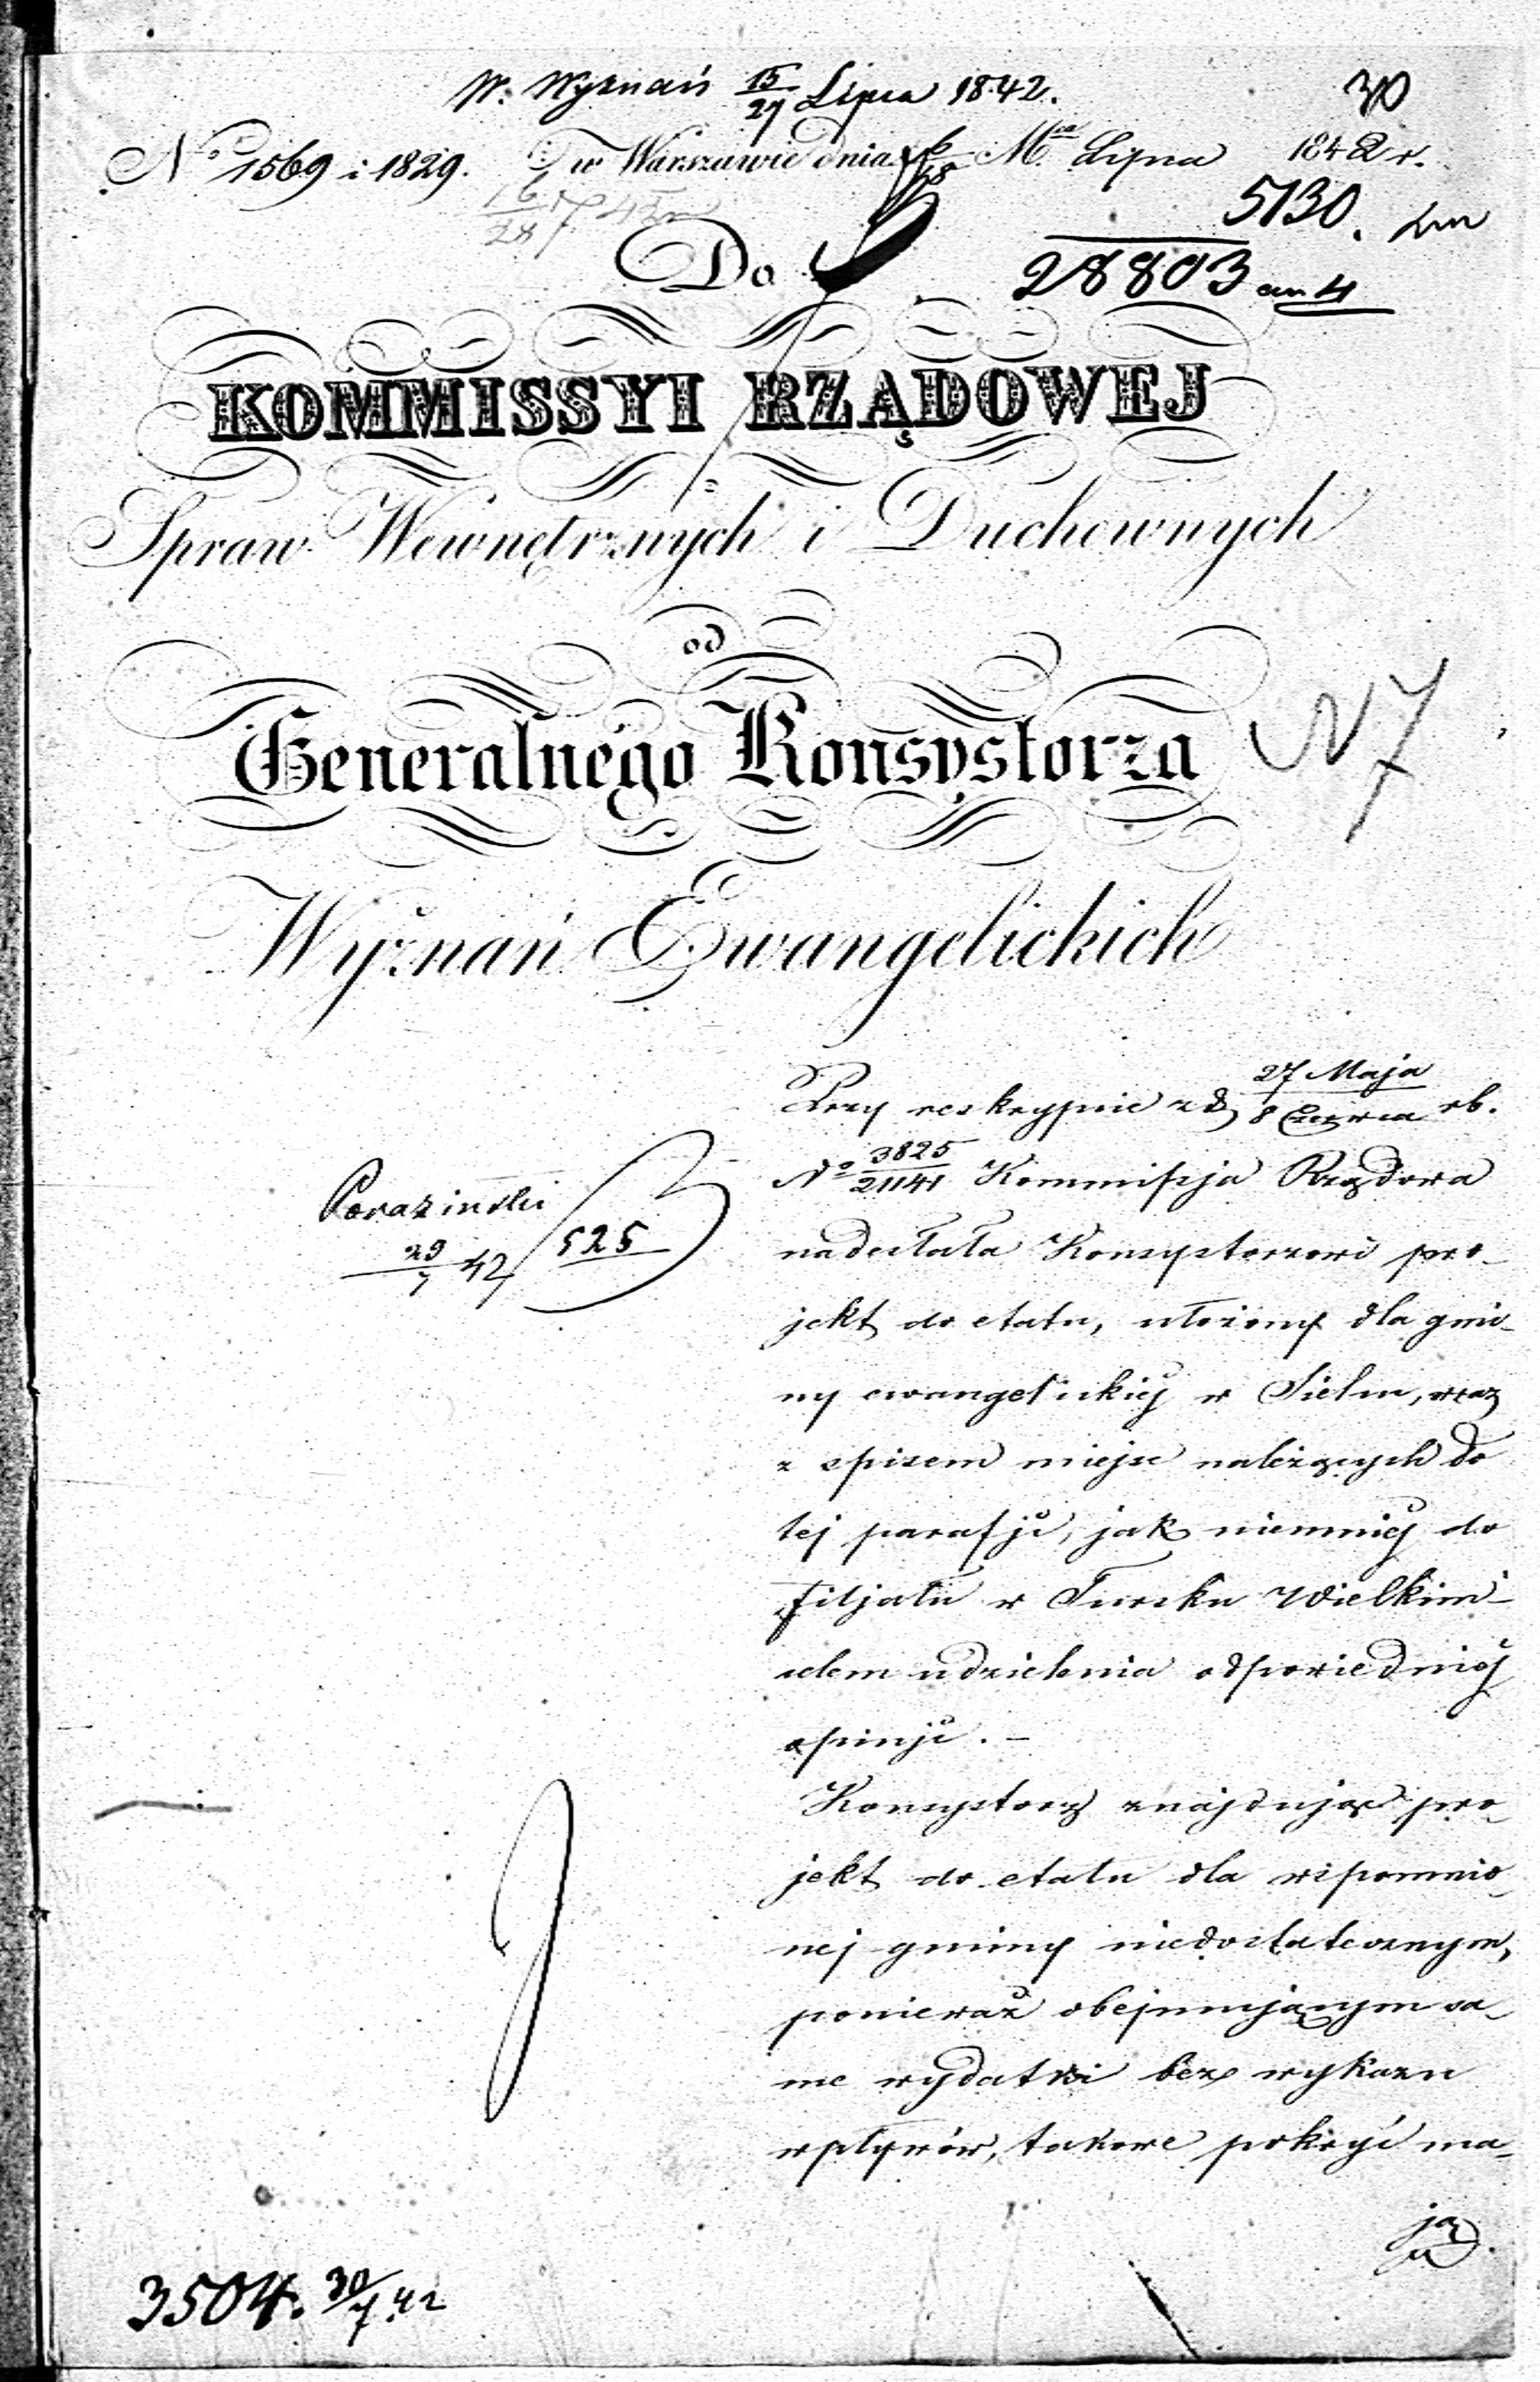 W. Wyznań 15/27 Lipca 1842.
30
No 1569 i 1829. w Warszawie dnia 6/18 Mca Lipca 1842 r.
16/28 7 42
5130.
Do
28803
KOMMISSYI RZĄDOWEJ
Spraw Wewnętrznych i Duchownych
od
Generalnego Konsystorza
N 7
Wyznań Ewangelickich
Przy reskrypcie z d. 27 Maja/8 Czerwca rb.
No 3825/21141 Kommissja Rządowa
nadesłała Konsystorzowi pro-
jekt do etatu, ułożony dla gmi-
ny ewangelickiej w Sielcu, wraz
z spisem miejsc należących do
tej parafji, jak niemniej do
filjału w Tursku Wielkim
celem udzielenia odpowiedniej
opinji. –
Konsystorz znajdując pro-
jekt do etatu dla wspomnio-
nej gminy niedostatecznym,
ponieważ obejmującym sa-
me wydatki bez wykazu
wpływów, takowe pokryć ma-
ją
Poraziński
29/7 42 525
3504. 30/7 42